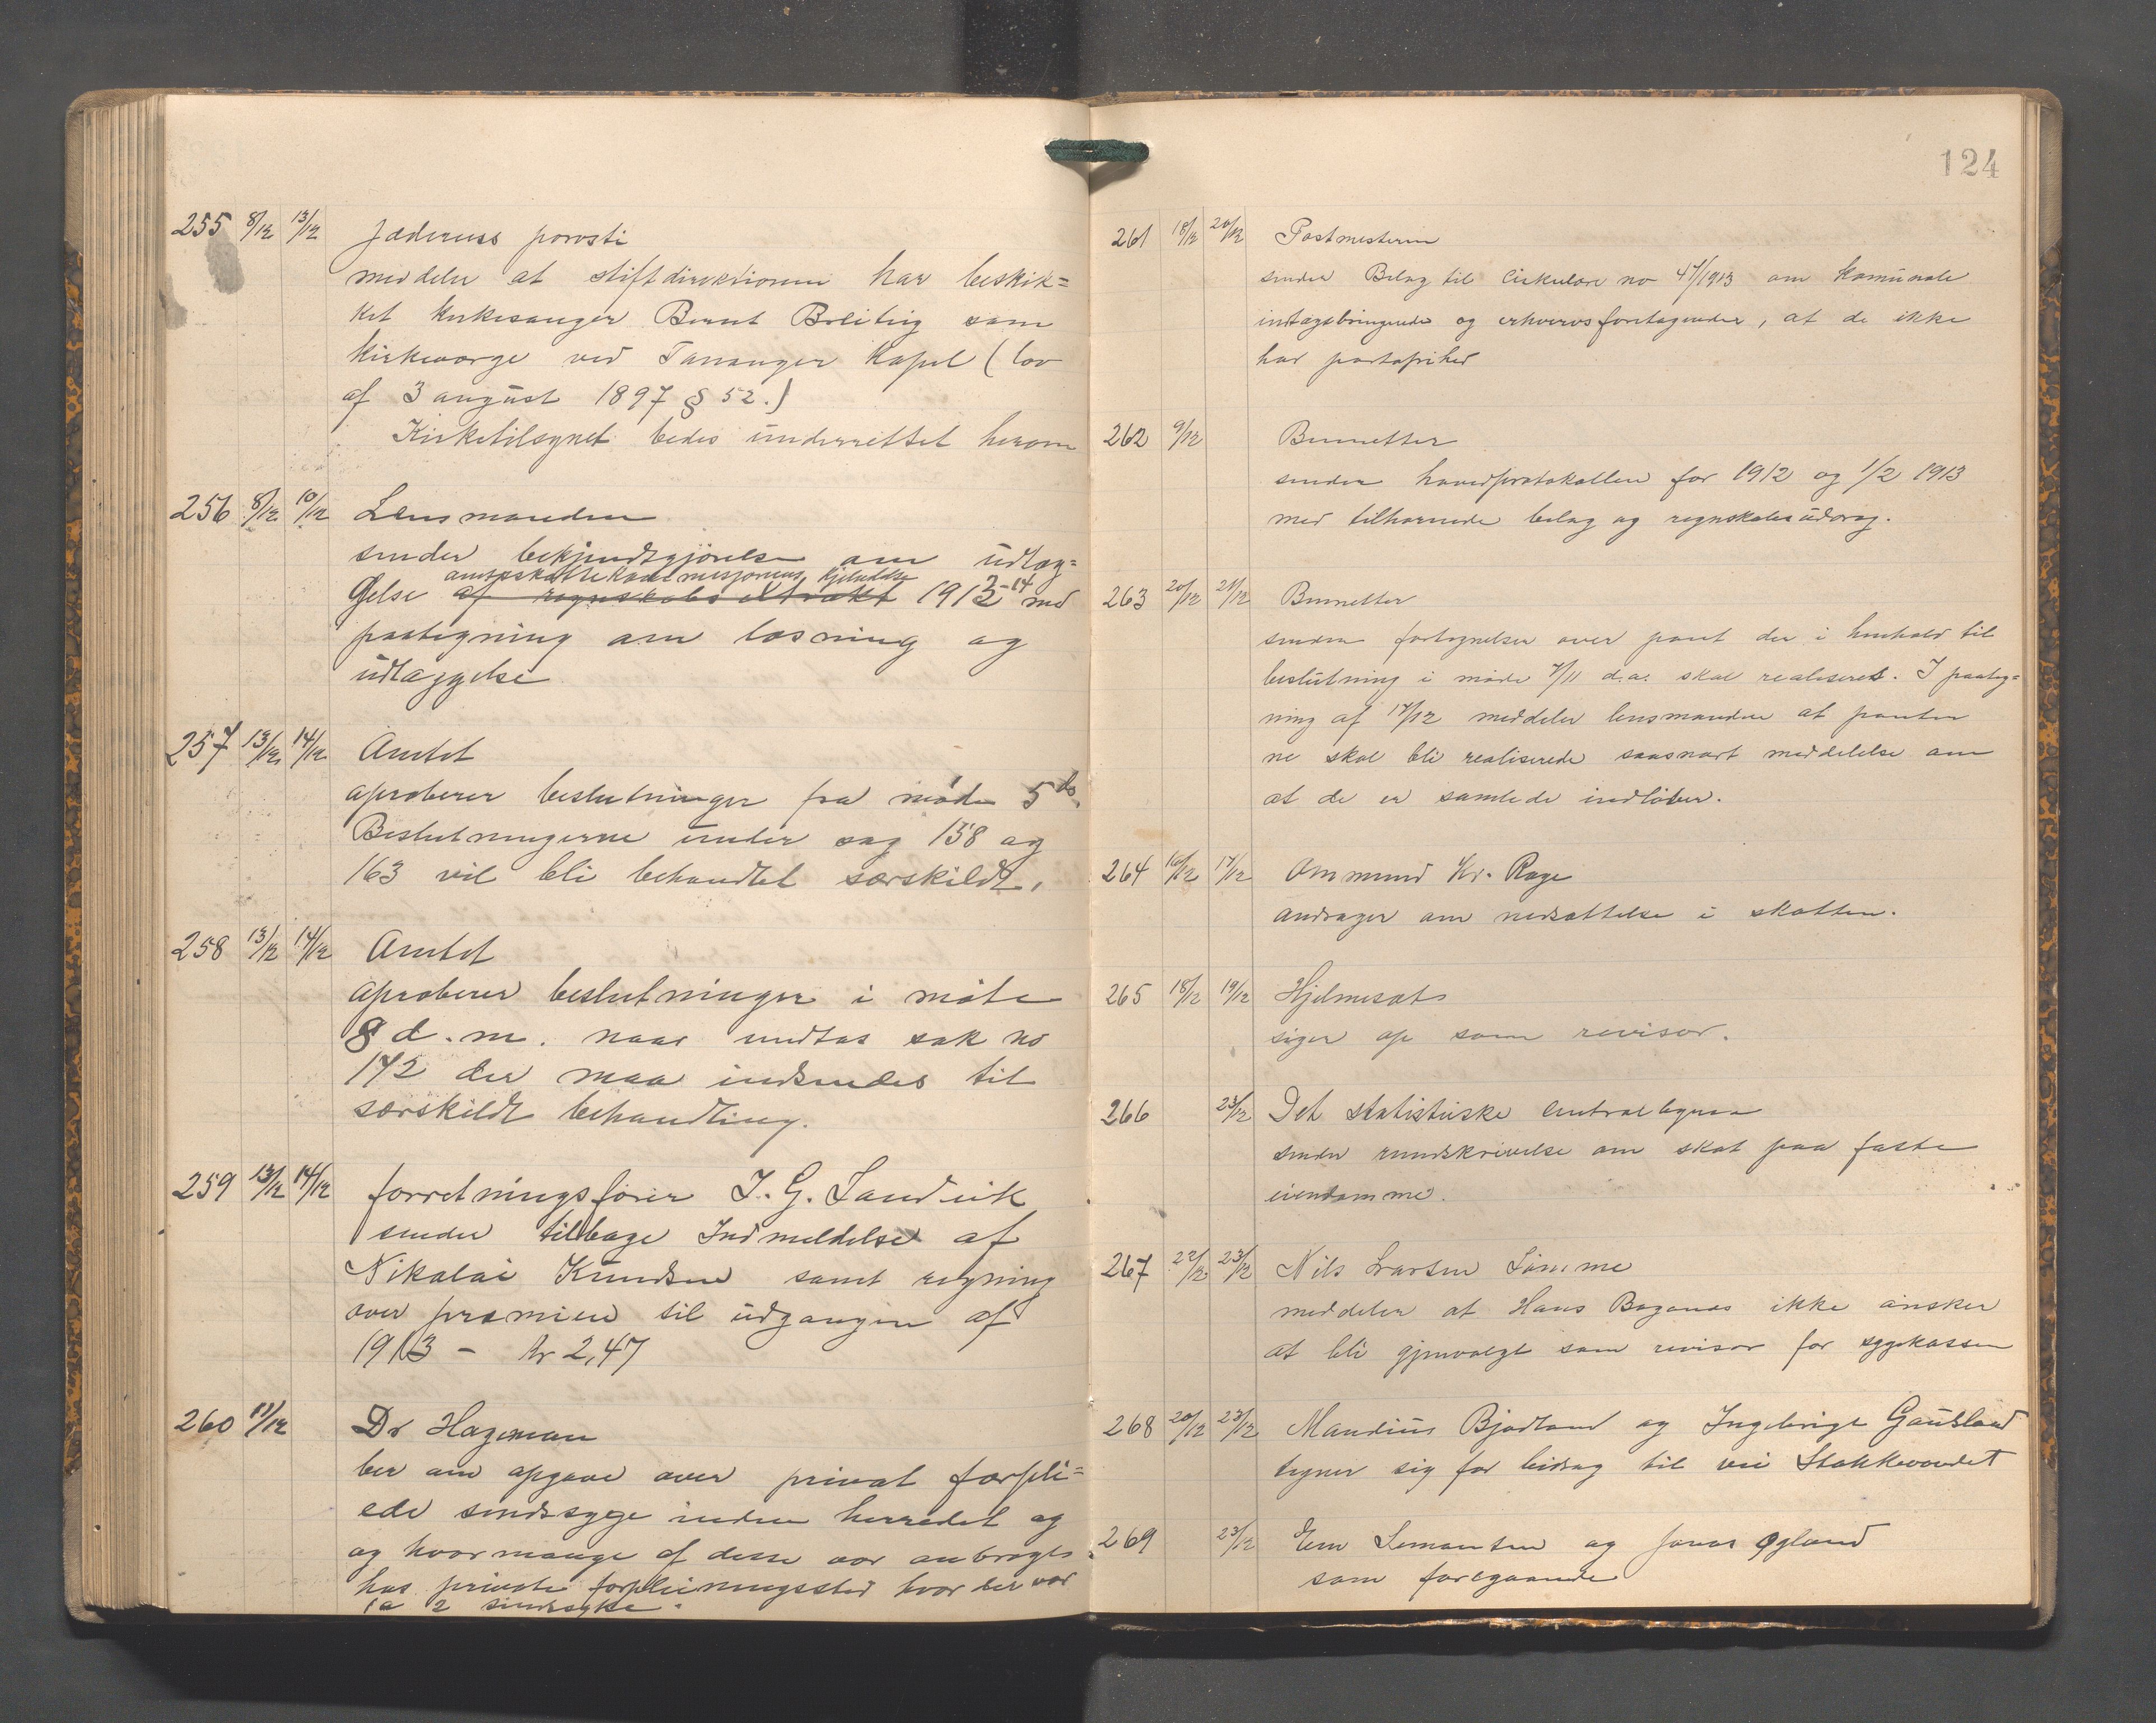 255 8/12 13/12 Jæderens provsti
meddeler at stiftdirektionen har beskik=
ket kirkesanger Bernt som
kirkeværge ved Tananger Kapel (lov
af 3 august 1897 § 52.)
Kirketilsynet bedes underrettet herom
256 8/12 10/12 Lensmanden
sender bekjendtgjörelse om udlæg=
amtsskattekommisjonens kjendelse
gelse af regnskabs extrakt 1913-14 med
paategning om læsning og
udlæggelse
257 13/12 14/12 Amtet
aproberer beslutninger fra møde 5 ds.
Beslutningerne under sag 158 og
163 vil bli behandlet særskildt.
258 13/12 14/12 Amtet
aproberer beslutninger i möte
8 d.m. naar undtas sak no
172 der maa indsendes til
særskildt behandling.
259 13/12 14/12 forretningsförer J. G. Sandvik
sender tilbage Indmeldelse af
Nikolai Knudsen samt regning
over præmien til udgangen af
1913 - kr 2,47
260 11/12 Dr Hageman
ber om opgave over privat forplei=
ede sindssyge inden herredet og
og hvor mange af disse var anbragte
hos private forpleiningssted hvor der var
1 a 2 sindssyke.
124
261 18/12 20/12 Postmesteren
sender Bilag til Cirkulære no 47/1913 om kommunale
indtægsbringende og erhvervsforetagender, at de ikke
har portofrihed
262 9/12
sender hovedprotokollen for 1912 og 1/2 1913
med tilhørende bilag og regnskabsuddrag.
263 20/12 21/12
sender fortegnelse over pant der i henhold til
beslutning i møde 7/11 d.a. skal realiseres. I paateg=
ning af 17/12 meddeler lensmanden at panter
ne skal bli realiserede saasnart meddelelse om
at de er samlede indløber.
264 16/12 17/12 Ommund Kr. Røge
andrager om nedsættelse i skatten.
265 18/12 19/12 Hjelmesæt
siger op som revisor.
266 23/12 Det statistiske centralbyraa
sender rundskrivelse om skat paa faste
eiendomme.
267 22/12 23/12 Nils Larsen Sømme
meddeler at Hans ikke ønsker
at bli gjenvalgt som revisor for sygekassen
268 20/12 23/12 Maudius Bjødland og Ingebrigt Gausland
tegner sig for bidrag til vei Stokkevandet
269 23/12 Em Simonsen og Jonas Øgland
som foregaaende